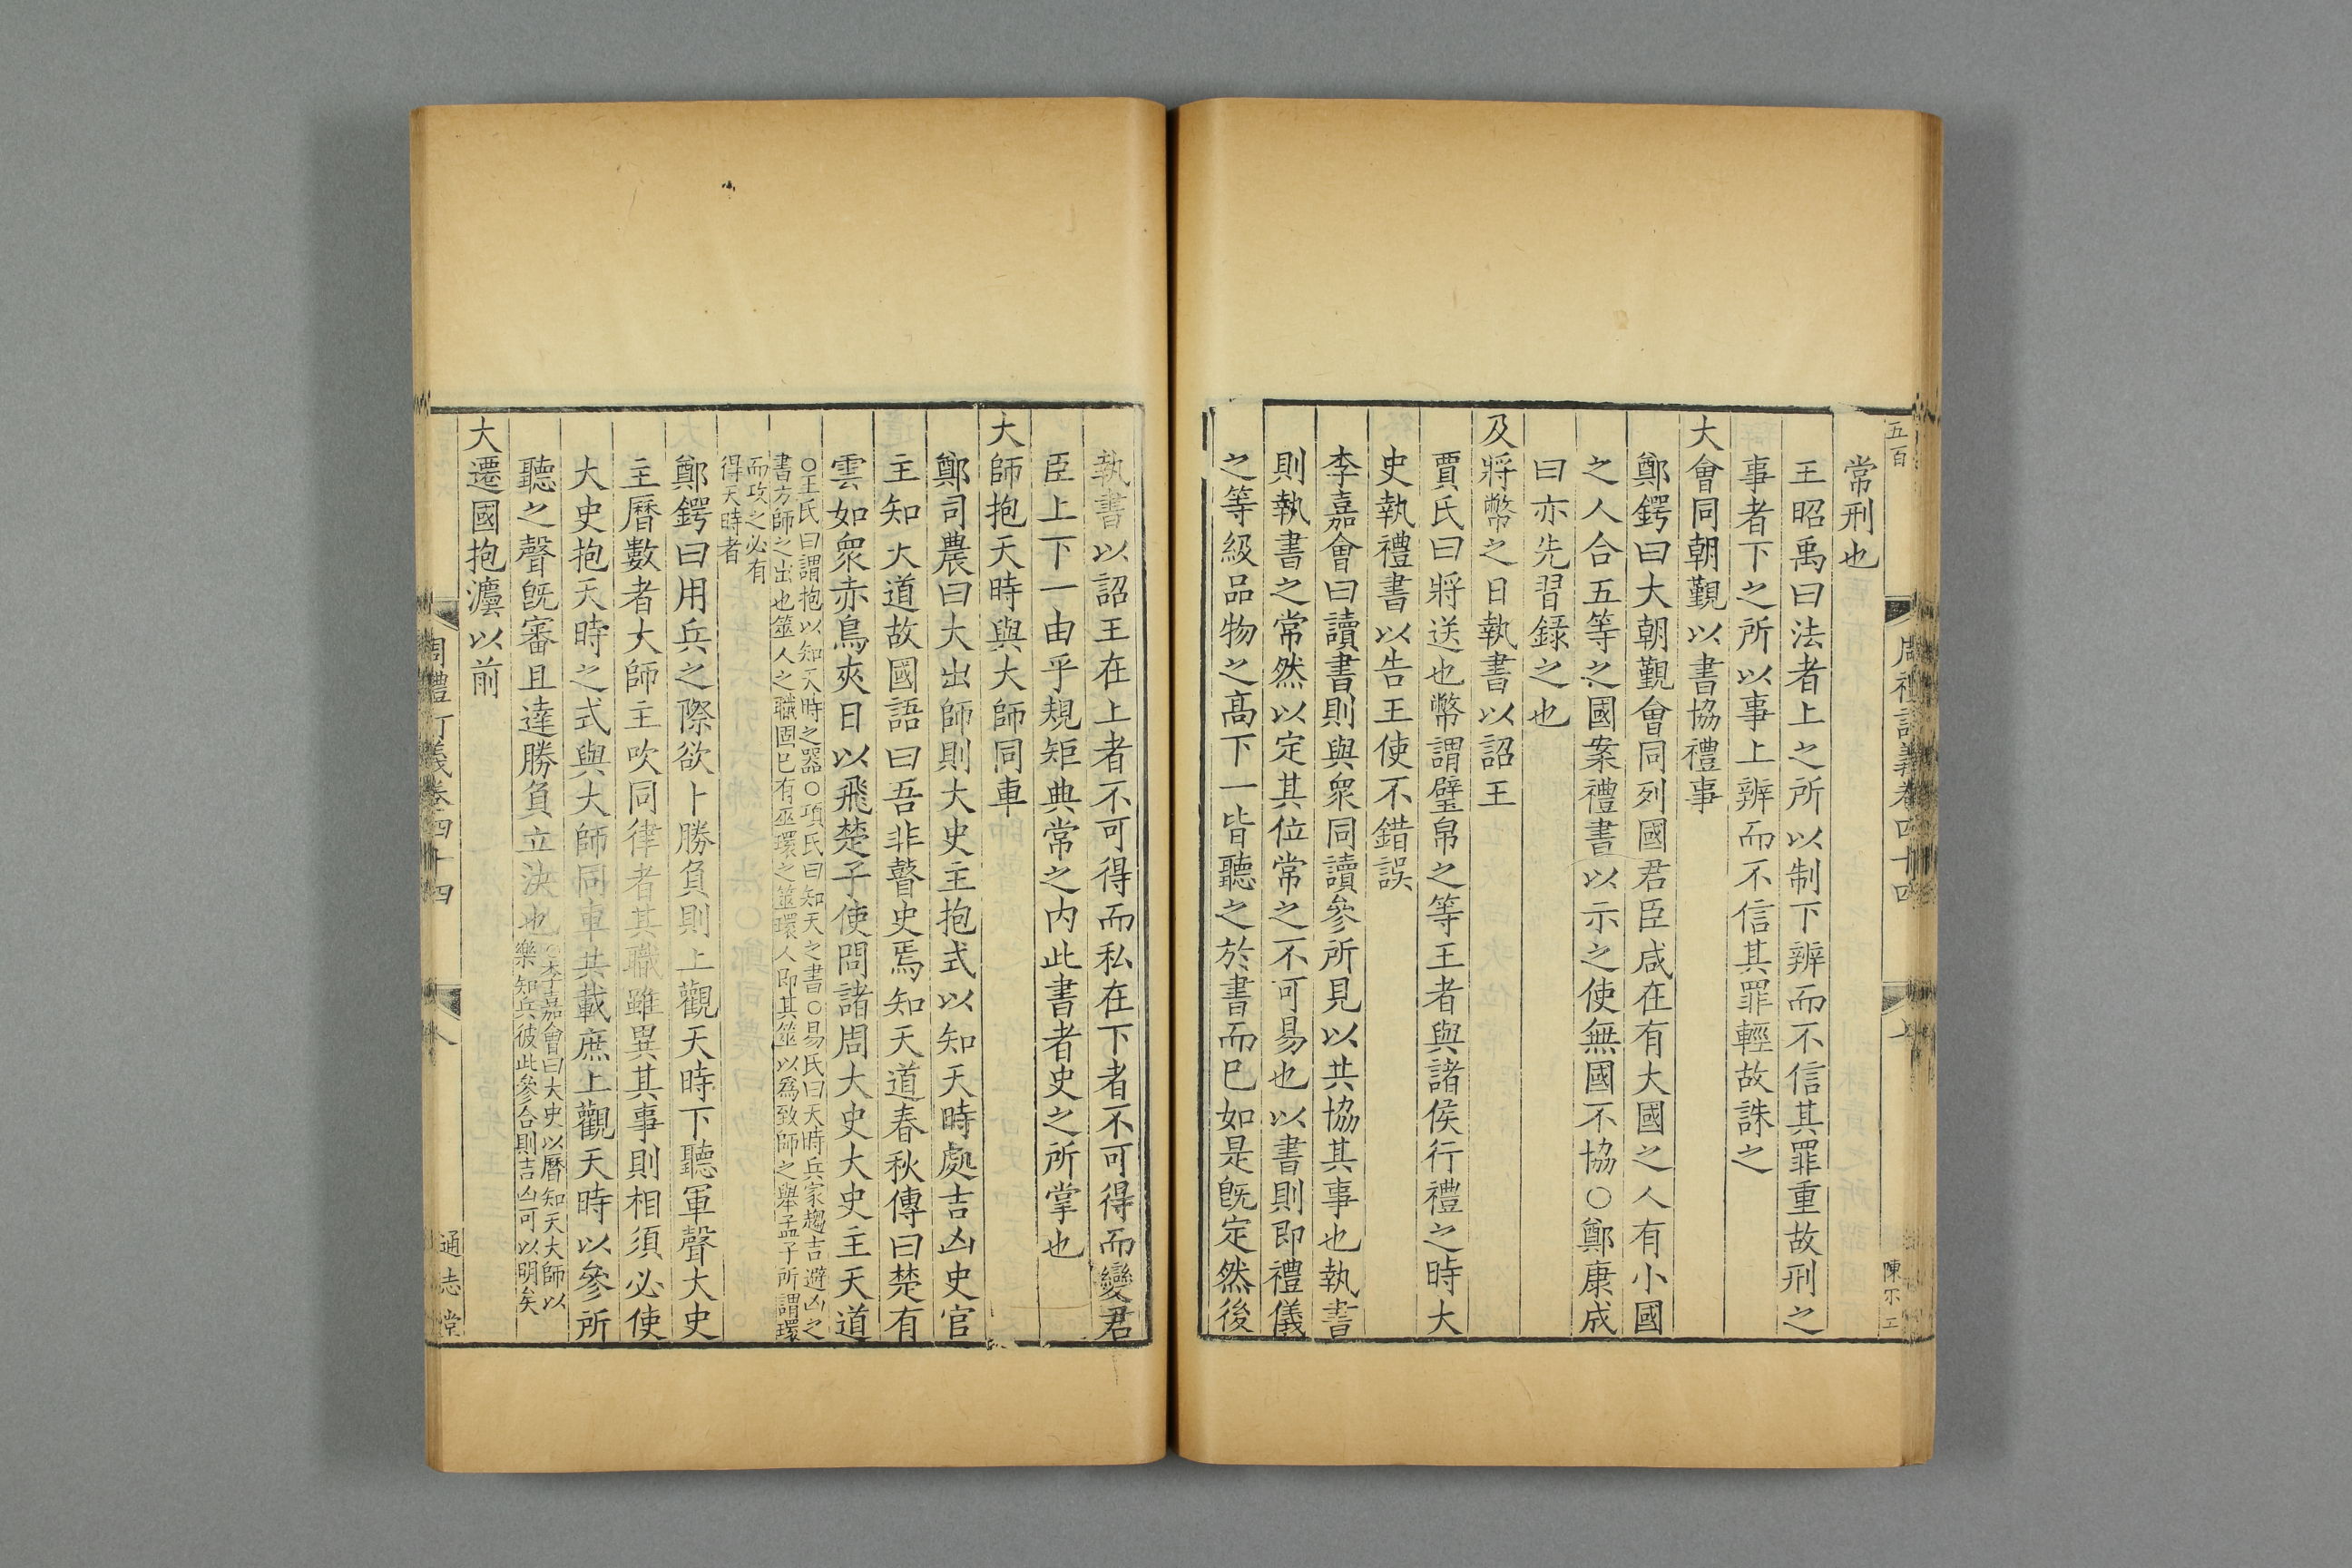 五百
周禮訂義卷四十四
七
陳不工
常刑也
王昭禹曰法者上之所以制下辨而不信其罪重故刑之
事者下之所以事上辨而不信其罪輕故誅之
大會同朝覲以書協禮事
鄭鍔曰大朝覲會同列國君臣咸在有大國之人有小國
之人合五等之國案禮書以示之使無國不協○鄭康成
曰亦先習録之也
及將幣之日執書以詔王
賈氏曰將送也幣謂璧帛之等王者與諸侯行禮之時大
史執禮書以告王使不錯誤
李嘉會曰讀書則與衆同讀參所見以共協其事也執書
則執書之常然以定其位常之不可易也以書則即禮儀
之等級品物之高下一皆聽之於書而巳如是旣定然後
執書以詔王在上者不可得而私在下者不可得而變君
臣上下一由乎規矩典常之内此書者史之所掌也
大師抱天時與大師同車
鄭司農曰大出師則大史主抱式以知天時處吉凶史官
主知大道故國語曰吾非瞽史焉知天道春秋傳曰楚有
雲如衆赤鳥夾日以飛楚子使問諸周大史大史主天道
○王氏曰謂抱以知天時之器○項氏曰知天之書○易氏曰天時兵家趨吉避凶之
書方師之出也筮人之職固巳有巫環之筮環人即其筮以爲致師之舉孟子所謂環
而攻之必有
得天時者
鄭鍔曰用兵之際欲卜勝負則上觀天時下聽軍聲大史
主曆數者大師主吹同律者其職雖異其事則相須必使
大史抱天時之式與大師同車共載庶上觀天時以參所
聽之聲旣審且達勝負立決也
○李嘉會曰大史以曆知天大師以
樂知兵彼此參合則吉凶可以明矣
大遷國抱灋以前
周禮訂義卷四十四
八
通志堂